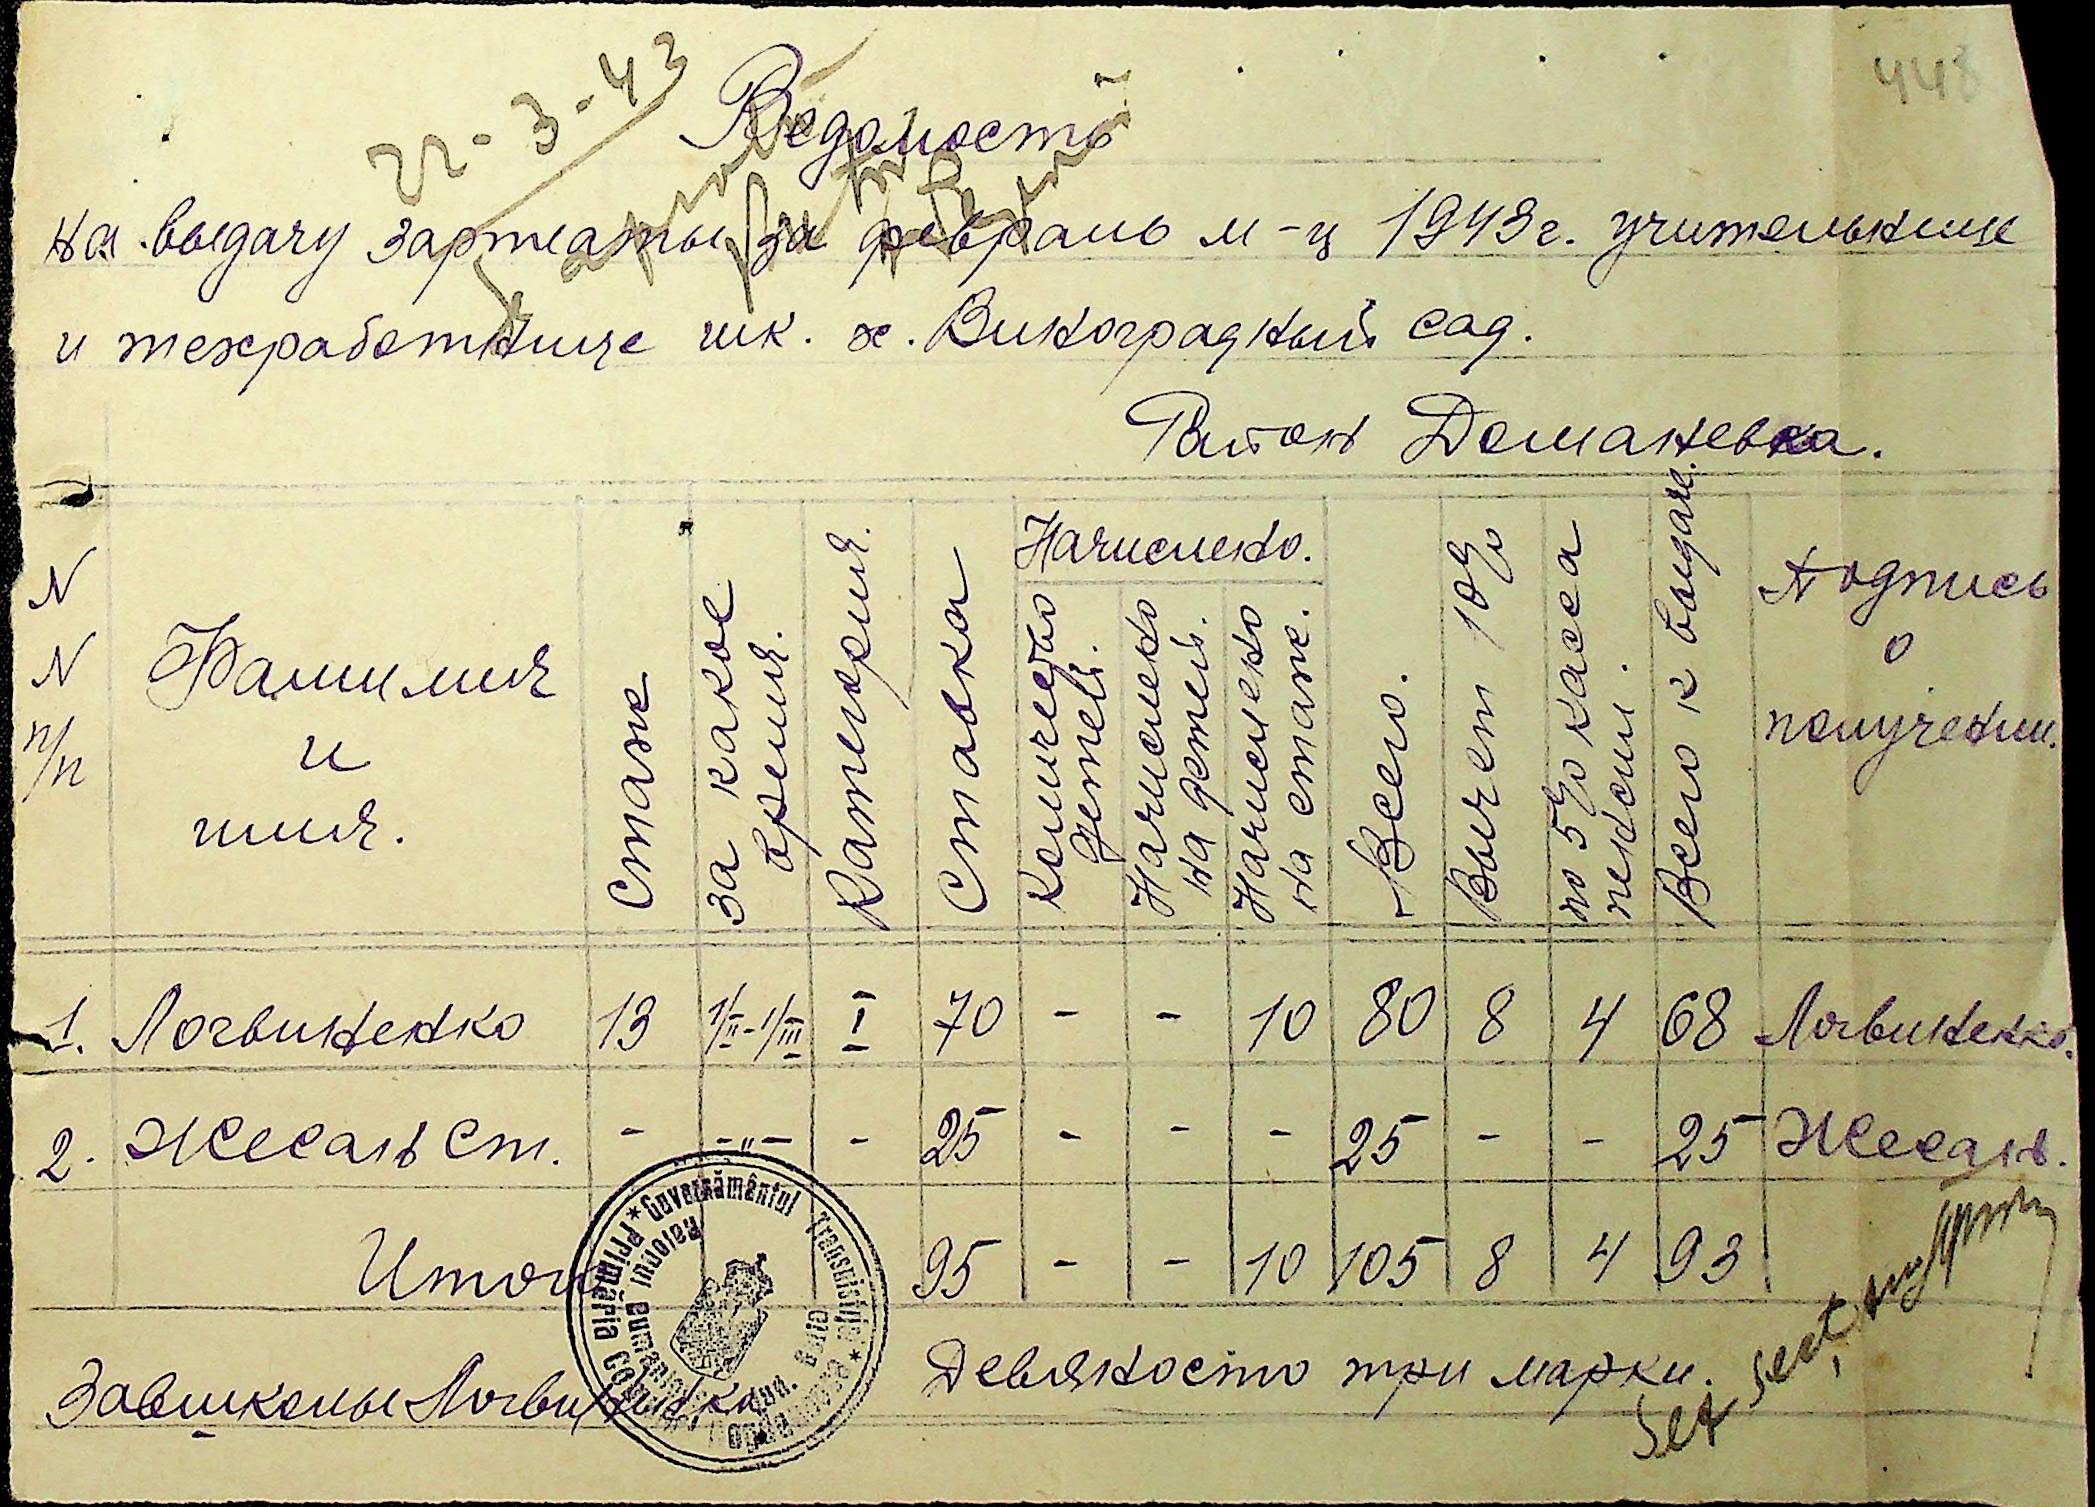 448
22-3-43
Ведомость
на выдачу зарплаты за февраль м-ц 1943 г. учительнице
и техработнице шк. х. Виноградный сад.
Район Доманевка.
N N п/п
Фамилия и имя.
Стаж
За какое время.
Категория.
Ставка
Начислено.
Количество детей.
Начислено на детей.
Начислено на стаж.
Всего.
Вычет 10%
по 5% касса пенсии.
Всего к выдаче.
Подпись о получении.
1. Логвиненко 13 1/II-1/III I 70 - - 10 80 8 4 68 Логвиненко.
2. Жесань Ст. - -"- - 25 - - - 25 - - 25 Жесань.
Итого 95 - - 10 105 8 4 93
Девяносто три марки.
Завшколы Логвиненко
Guvernământul Transnistria
Primăria
Raionul
Șef secț